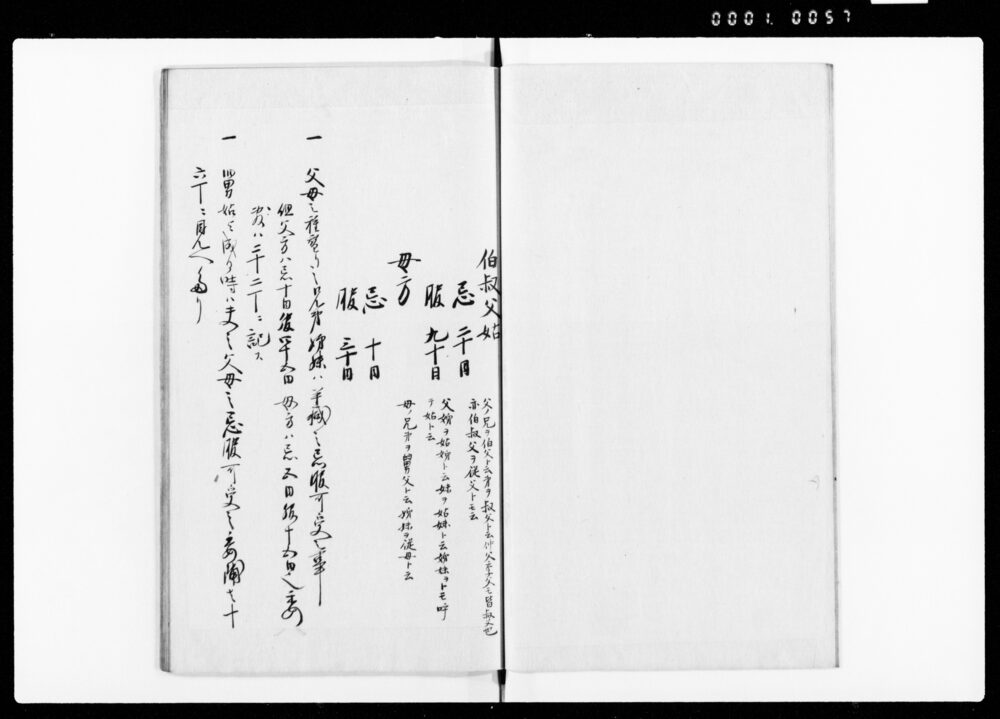 0001.0057
伯叔父姑
忌 二十日
服 九十日
父ノ兄ヲ伯父ト云弟ヲ叔父ト云仲父季父モ皆叔父也
亦伯叔父ヲ従父トモ云
父姉ヲ姑姉ト云妹ヲ姑妹ト云姉妹ヲトモ呼
テ姑ト云
母方
忌 十日
服 三十日
母ノ兄弟ヲ舅父ト云姉妹ヲ従母ト云
一 父母之種替り之兄弟姉妹ハ半減之忌服可受之事
但父方ハ忌十日服四十五日母方ハ忌五日服十五日也委
ハ二十二丁ニ記ス
一 舅姑之時ハ夫之父母之忌服可受之委細者十
六丁ニ見ヘタリ